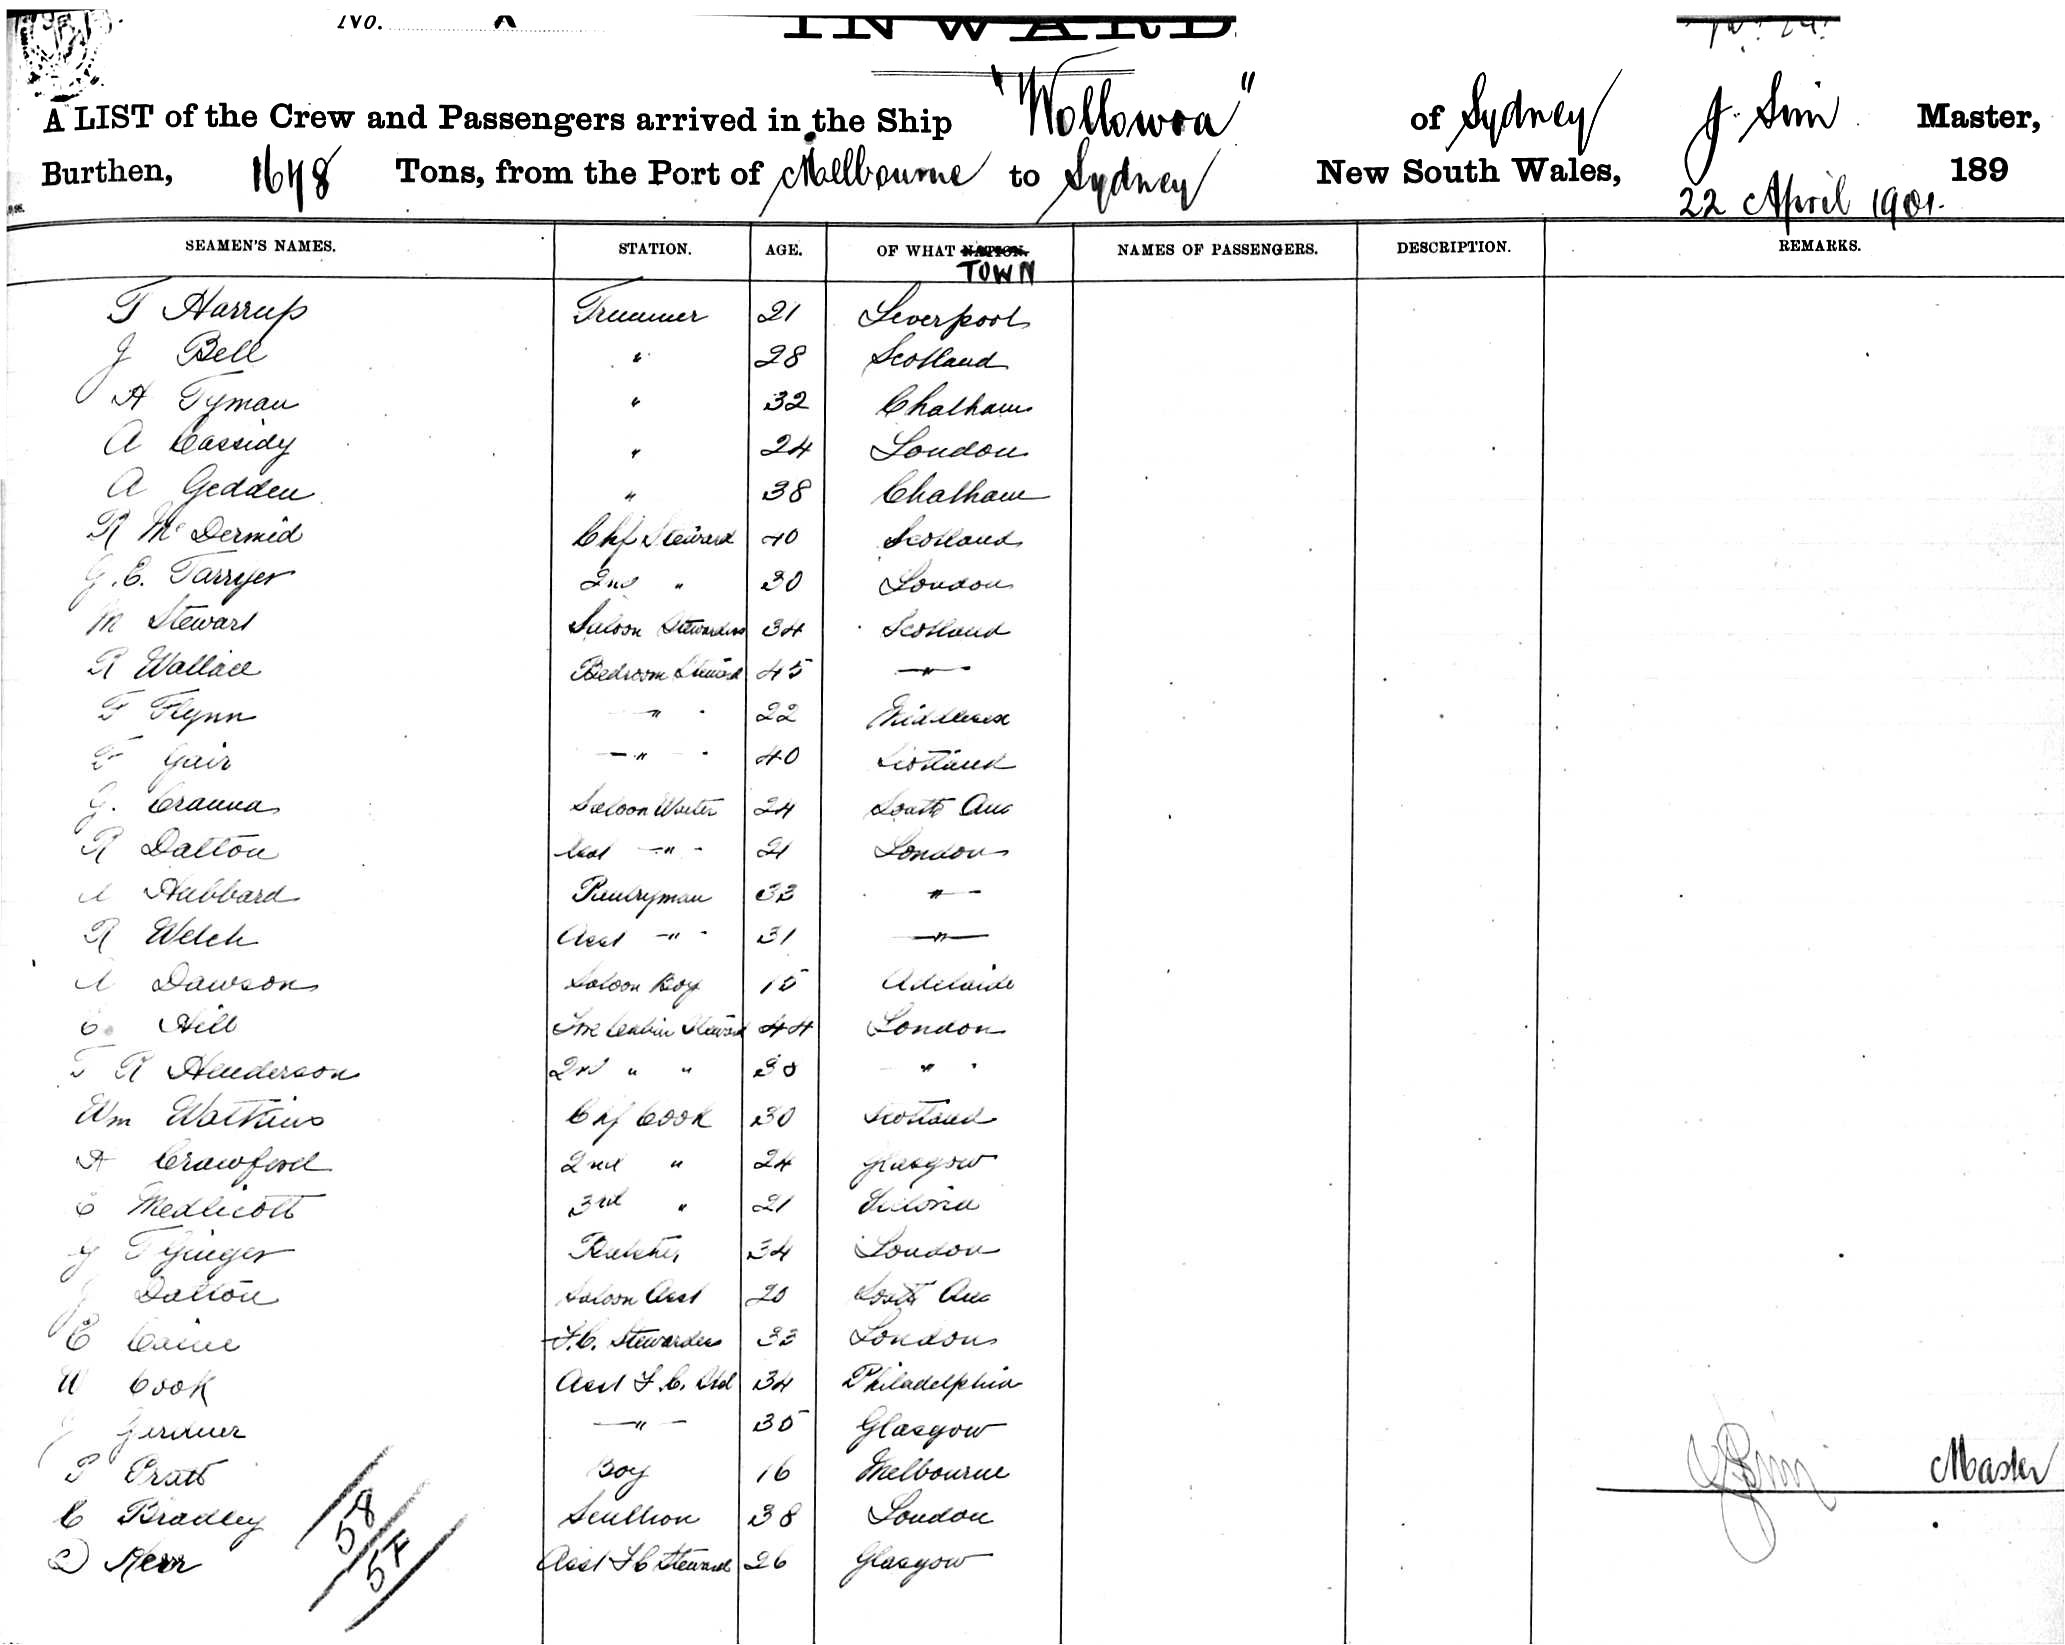 No.
INWARD
A LIST of the Crew and Passengers arrived in the Ship "Wollowra" of Sydney J. Sim Master,
Burthen, 1648 Tons, from the Port of Melbourne to Sydney New South Wales, 189
22 April 1901.
SEAMEN'S NAMES. STATION. AGE. OF WHAT NATION. NAMES OF PASSENGERS. DESCRIPTION. REMARKS.
TOWN
T Harrup Trimmer 21 Liverpool
J Bell " 28 Scotland
A Tyman " 32 Chatham
A Cassidy " 24 London
A Gedden " 38 Chatham
R McDermid Chf Steward 40 Scotland
G. E. Tarryer 2nd " 30 London
M Stewart Saloon Stewardess 34 Scotland
R Wallace Bedroom Steward 45 "
F Flynn " 22 Middlesex
F Gair " 40 Scotland
G. Cranna Saloon Waiter 24 South Aus
R Dalton Asst " 21 London
A Hubbard Pantryman 33 "
R Welch Asst " 31 "
A Dawson Saloon Boy 15 Adelaide
C. Hill Fore Cabin Steward 44 London
T R Henderson 2nd " " 30 "
Wm Watkins Chf Cook 30 Scotland
A Crawford 2nd " 24 Glasgow
C Medlicott 3rd " 21 Victoria
G T Ginger Butcher 34 London
J Dalton Saloon Asst 20 South Aus
E Caine F.C. Stewardess 33 London
W Cook Asst F.C. Std 34 Philadelphia
J Gardner " 35 Glasgow
P Pratt Boy 16 Melbourne
C Bradley Scullion 38 London
D Kerr Asst F C Steward 26 Glasgow
58
57
J Sim Master